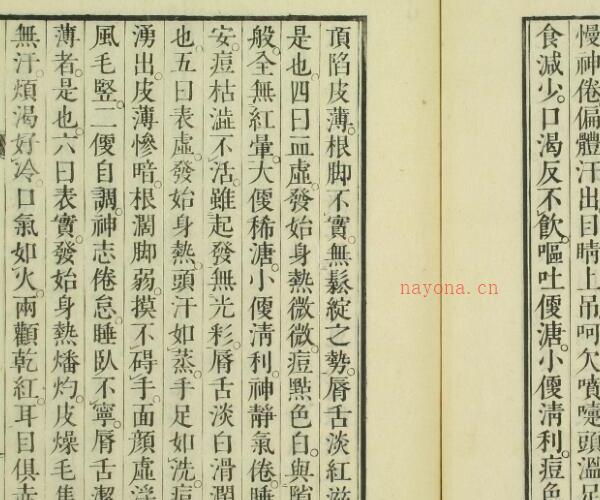 慢神倦偏體汗出目睛上吊呵欠噴嚏頭溫足
食減少。口渴反不飲。嘔吐便溏。小便淸利。痘色
頂陷皮薄。根脚不實。無鬆綻之勢。脣舌淡紅滋
是也。四曰血虛。發始身熱微微。痘㸃色白。與隋
般。全無紅暈。大便稀溏。小便淸利。神靜氣倦。睡
安。痘枯澁不活。雖起發無光彩。脣舌淡白滑潤
也。五曰表虛。發始身熱。頭汗如蒸。手足如洗。痘
湧出。皮薄慘暗。根濶脚弱。摸不碍手。面顏虛浮
風毛竪。二便自調。神志倦怠。睡臥不寧。脣舌潔
薄者。是也。六曰表實。發始身熱燔灼。皮燥毛焦
無汗煩渴好冷。口氣如火。兩顴乾紅。耳目俱赤
nayona.cn